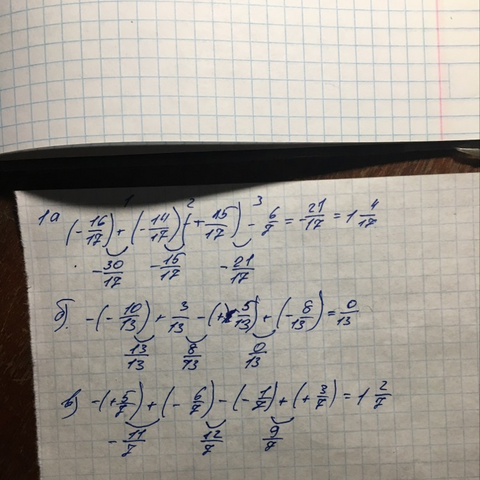 1 2 3
1а (-16/17) + (-14/17) - (+15/17) - 6/7 = 21/17 = 1 4/17
-30/17 -15/17 -21/17
б). -(-10/13) + 3/13 - (+5/13) + (-8/13) = 0/13
13/13 8/13 0/13
в) -(+5/7) + (-6/7) - (-1/7) + (+3/7) = 1 2/7
-11/7 12/7 9/7